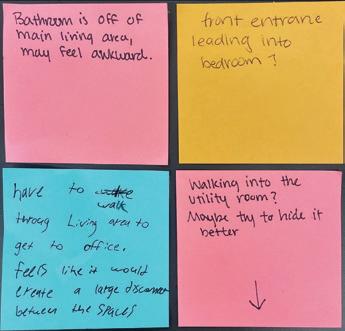 Bathroom is off of
main living area,
may feel awkward.
front entrane
leading into
bedroom?
have to walk
throug Living area to
get to office.
feels like it would
create a large disconnect
between the spaces
Walking into the
utility room?
Maybe try to hide it
better